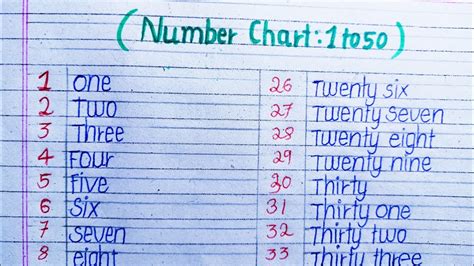 (Number Chart:1 to 50)
1 one 26 Twenty six
2 Two 27 Twenty seven
3 Three 28 Twenty eight
4 Four 29 Twenty nine
5 Five 30 Thirty
6 Six 31 Thirty one
7 seven 32 Thirty two
8 eight 33 Thirty three